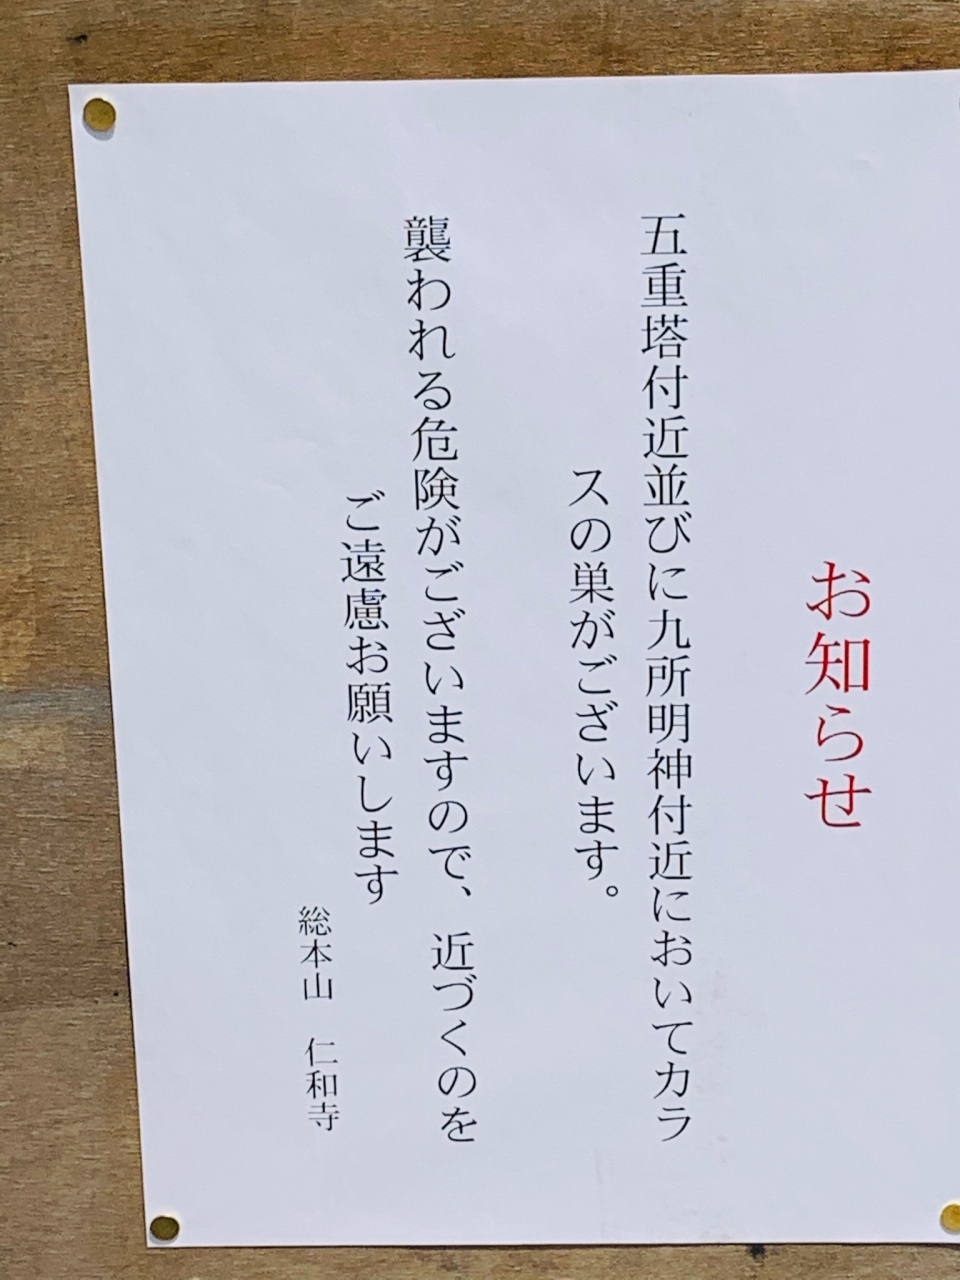 お知らせ
五重塔付近並びに九所明神付近においてカラ
スの巣がございます。
襲われる危険がございますので、近づくのを
ご遠慮お願いします
総本山　仁和寺